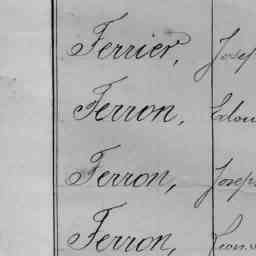 Ferrier, Josep
Ferron,
Ferron, Joseph
Ferron,